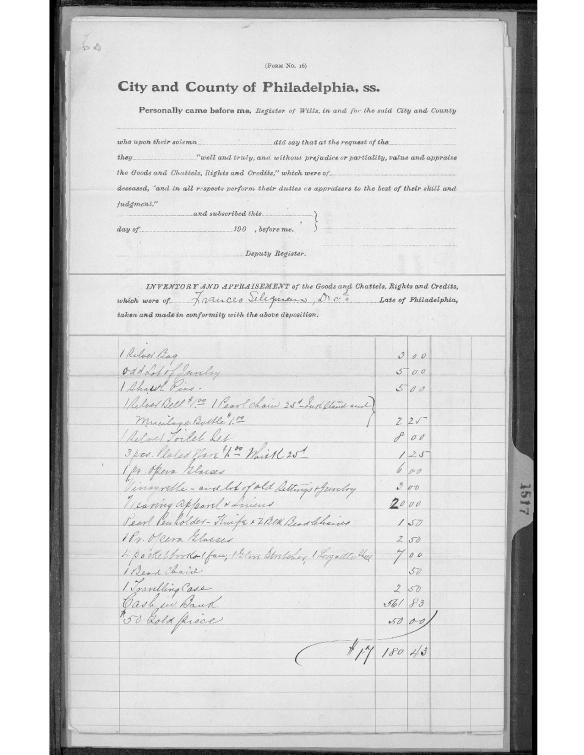 (FORM No. 16)
City and County of Philadelphia, ss.
Personally came before me, Register of Wills, in and for the said City and County
who upon their solemn did say that at the request of the
they "well and truly, and without prejudice or partiality, value and appraise
the Goods and Chattels, Rights and Credits," which were of
deceased, "and in all respects perform their duties as appraisers to the best of their skill and
judgment."
and subscribed this
day of 190 , before me.
Deputy Register.
INVENTORY AND APPRAISEMENT of the Goods and Chattels, Rights and Credits,
which were of Frances Seligman, Dec'd Late of Philadelphia,
taken and made in conformity with the above deposition.
1 Silver Bag 3 00
odd Lot of Jewelry 5 00
1 Shawl Pin - 5 00
1 Silver Belt $1.00 1 Pearl Chain 25¢ Ink Stand and
Mucilage Bottle $1.00 2 25
1 Silver Toilet Set 8 00
3 pcs. Plated Ware $1.00 Whisk 25¢ 1 25
1 pr. Opera Glasses 6 00
Vinaigrette - and lot of old Settings & Jewelry 3 00
Wearing Apparel & Linens 20 00
Pearl Penholder - Knife & 2 Bead Chains 1 50
1 Pr. Opera Glasses 2 50
pocketbooks 1 fan, 1 Glove Stretcher, 1 7 00
1 Bead Chain 50
1 Travelling Case 2 50
Cash in Bank 561 83
$50 Gold piece 50 00
$17 180 43
1517